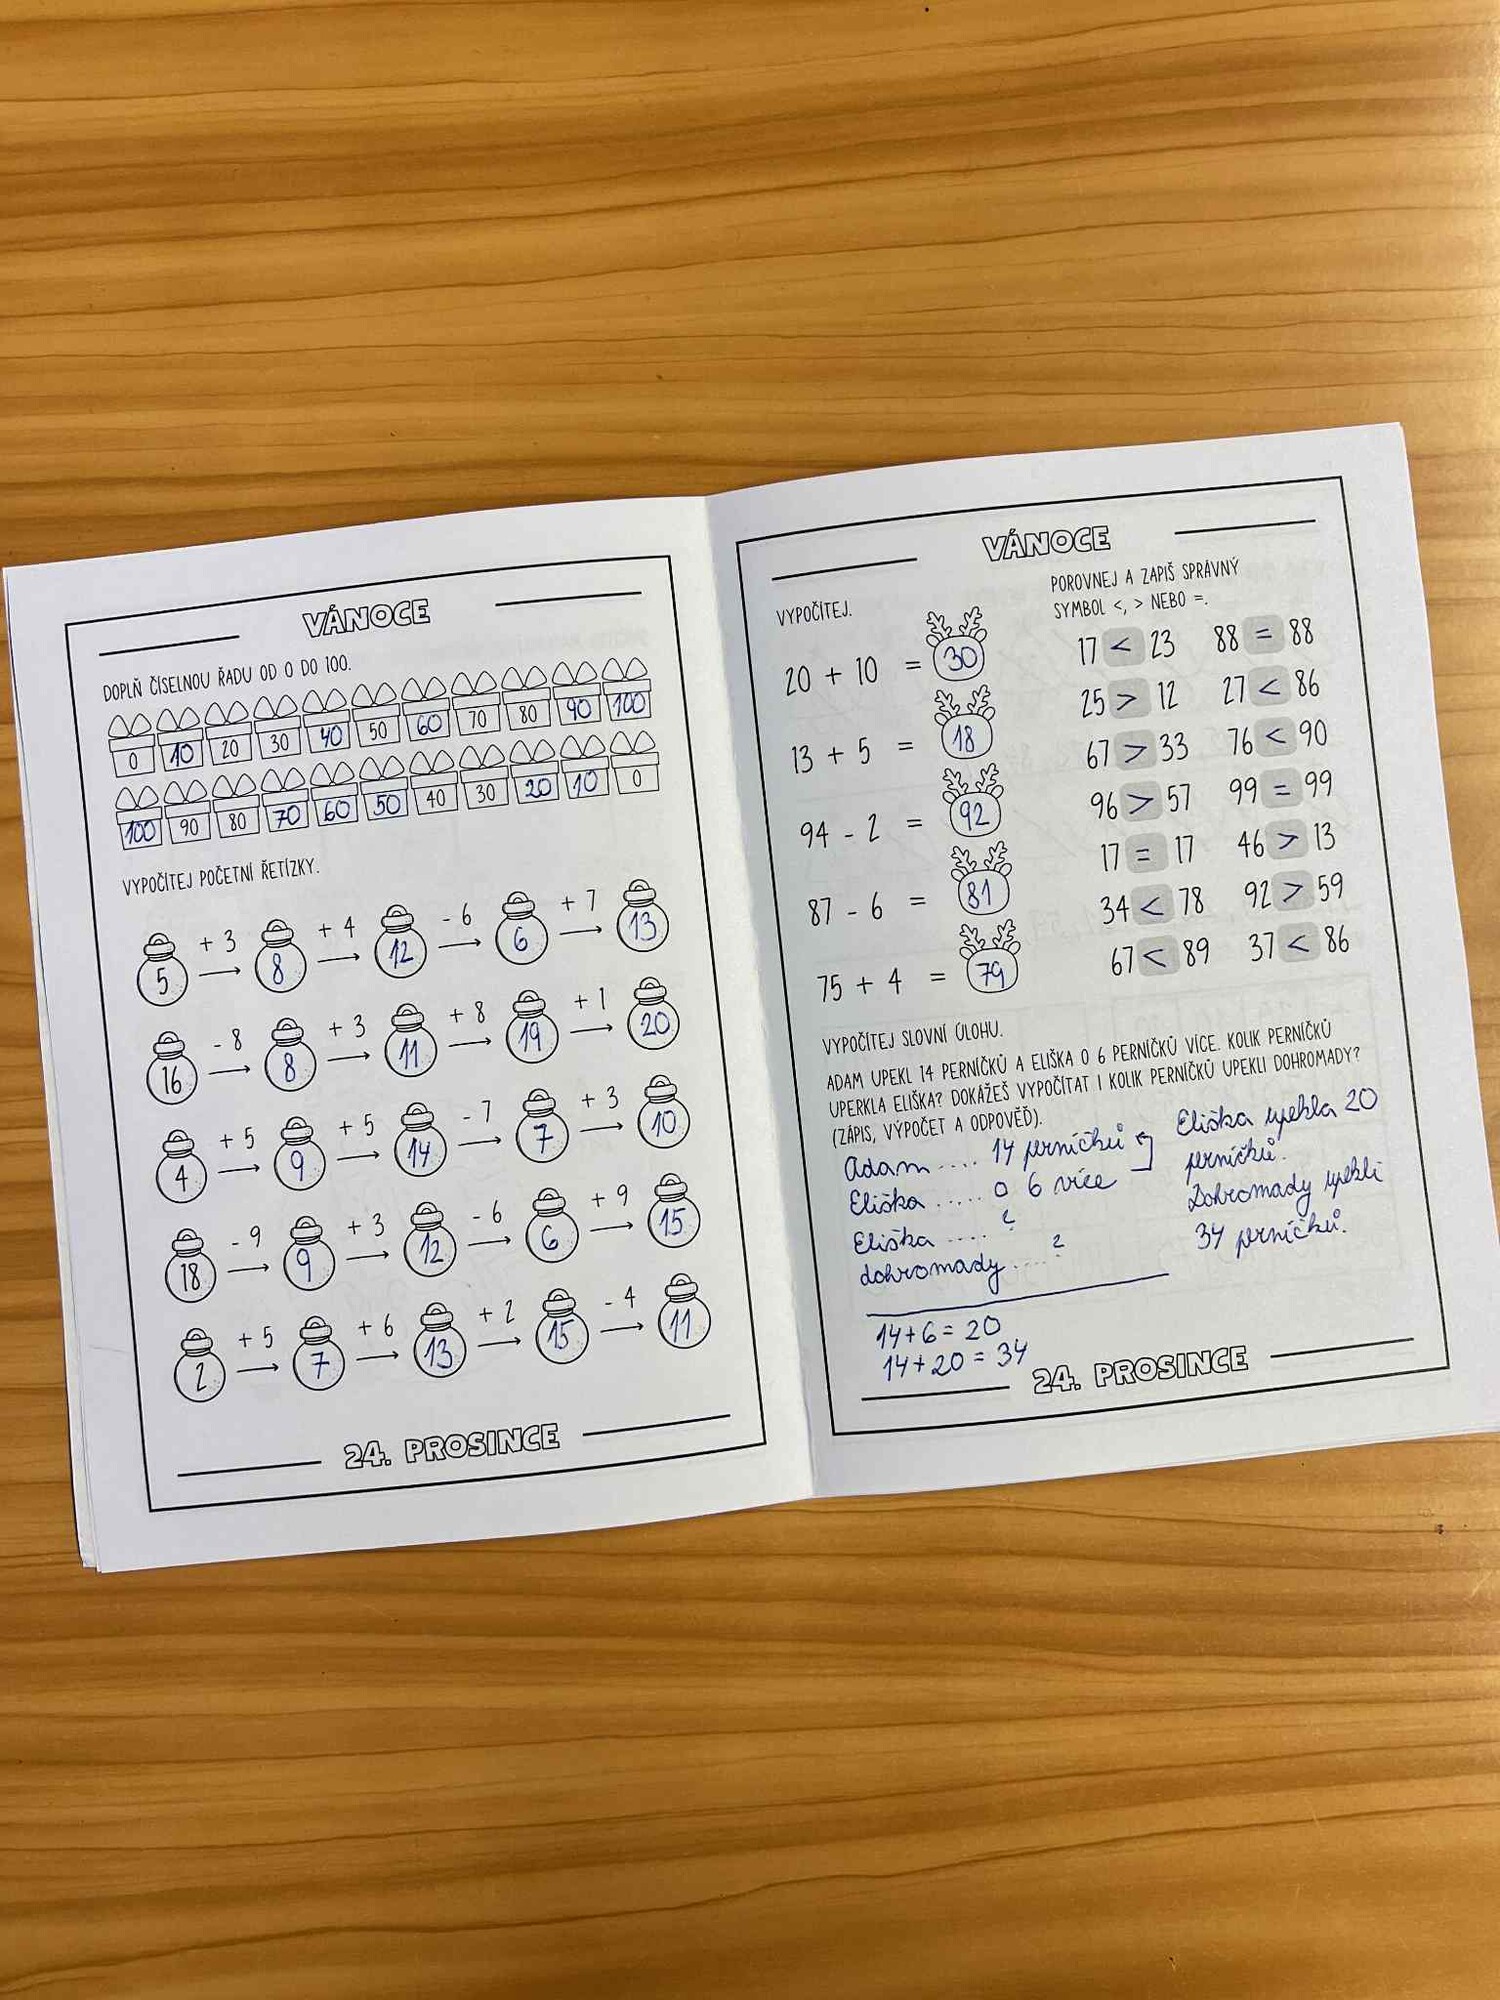 VÁNOCE
DOPLŇ ČÍSELNOU ŘADU OD 0 DO 100.
0 10 20 30 40 50 60 70 80 90 100
100 90 80 70 60 50 40 30 20 10 0
VYPOČÍTEJ POČETNÍ ŘETÍZKY.
5 + 3 → 8 + 4 → 12 - 6 → 6 + 7 → 13
16 - 8 → 8 + 3 → 11 + 8 → 19 + 1 → 20
4 + 5 → 9 + 5 → 14 - 7 → 7 + 3 → 10
18 - 9 → 9 + 3 → 12 - 6 → 6 + 9 → 15
2 + 5 → 7 + 6 → 13 + 2 → 15 - 4 → 11
24. PROSINCE
VÁNOCE
VYPOČÍTEJ.
20 + 10 = 30
13 + 5 = 18
94 - 2 = 92
87 - 6 = 81
75 + 4 = 79
POROVNEJ A ZAPIŠ SPRÁVNÝ
SYMBOL <, > NEBO =.
17 < 23 88 = 88
25 > 12 27 < 86
67 > 33 76 < 90
96 > 57 99 = 99
17 = 17 46 > 13
34 < 78 92 > 59
67 < 89 37 < 86
VYPOČÍTEJ SLOVNÍ ÚLOHU.
ADAM UPEKL 14 PERNÍČKŮ A ELIŠKA O 6 PERNÍČKŮ VÍCE. KOLIK PERNÍČKŮ
UPERKLA ELIŠKA? DOKÁŽEŠ VYPOČÍTAT I KOLIK PERNÍČKŮ UPEKLI DOHROMADY?
(ZÁPIS, VÝPOČET A ODPOVĚĎ).
Adam .... 14 perníčků
Eliška ..... o 6 více
Eliška .... ?
dohromady .... ?
14+6=20
14+20=34
Eliška upekla 20
perníčků.
Dohromady upekli
34 perníčků.
24. PROSINCE